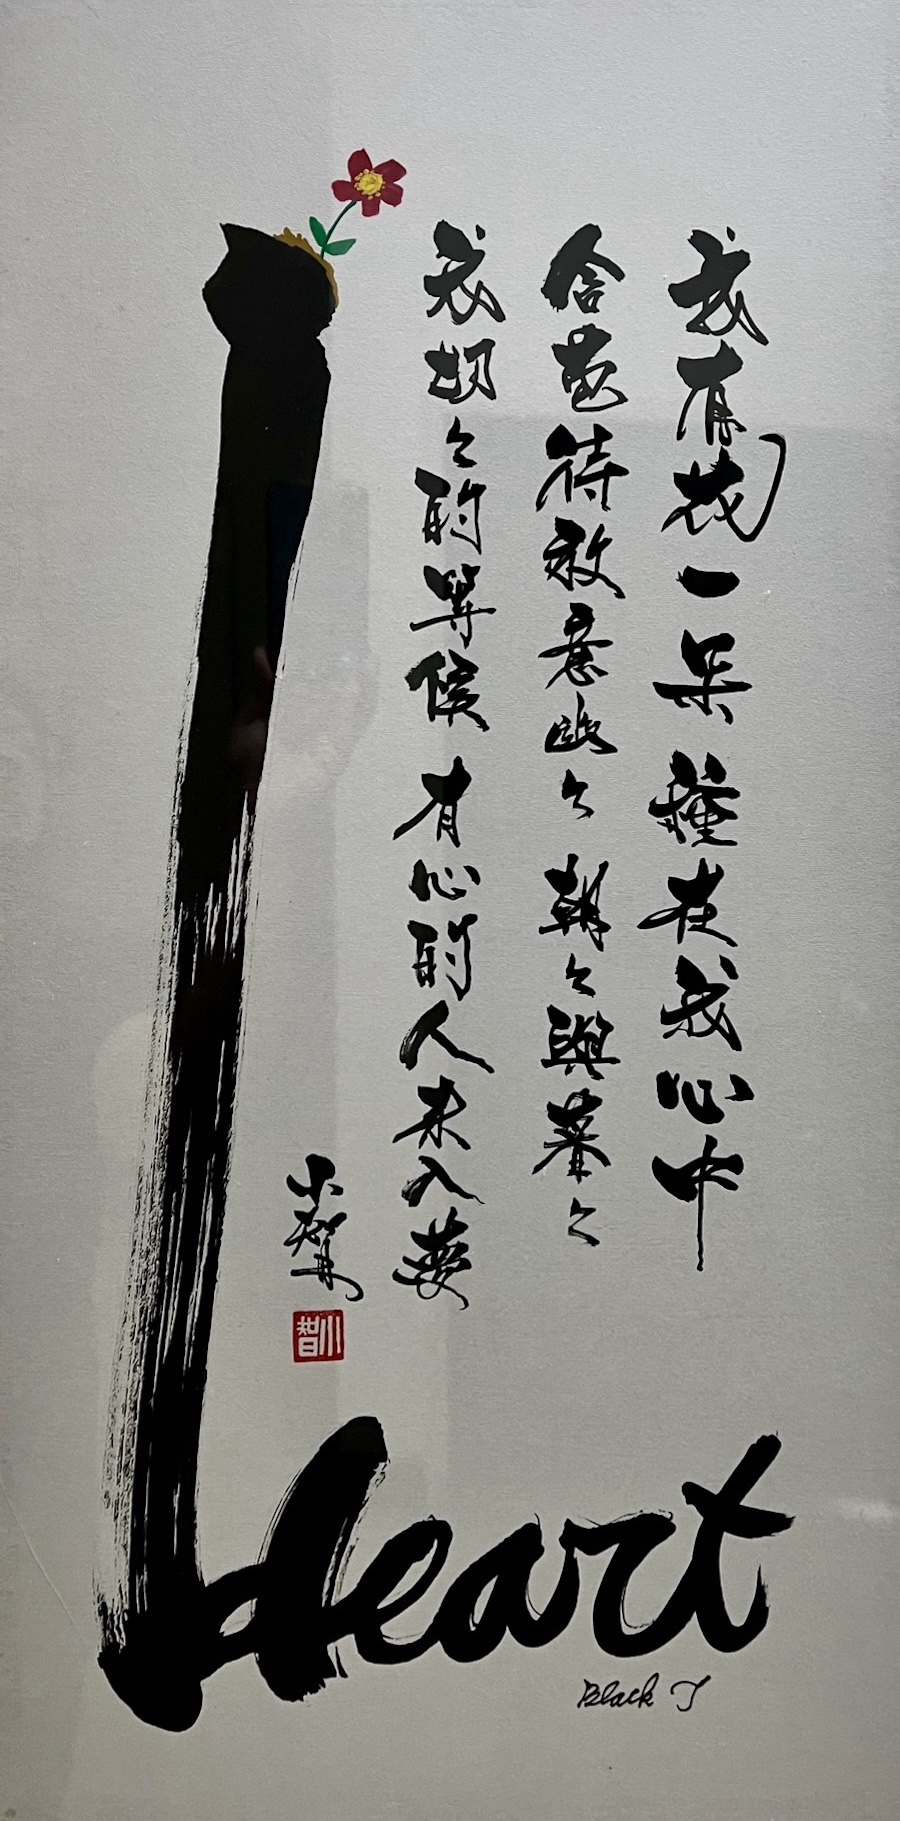 我有花一朵 種在我心中
含苞待放意幽々 朝々與暮々
我切々的等候 有心的人来入夢
小智
Heart
Black J